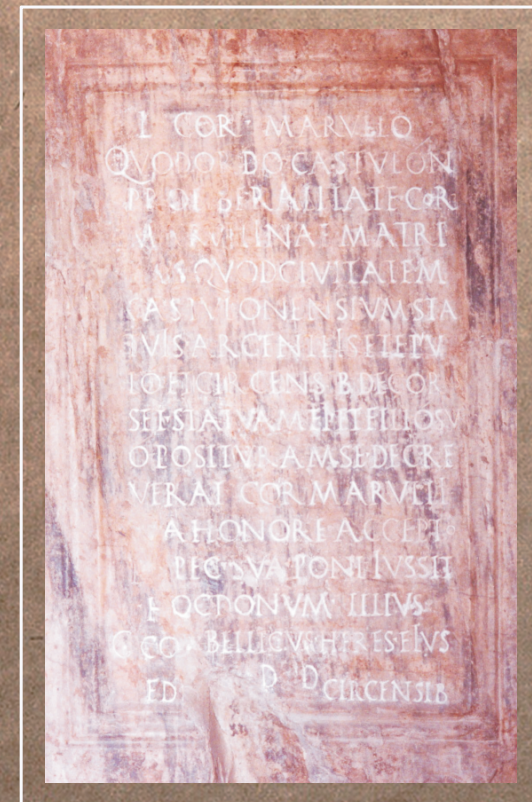 L COR MARVLLO
QVOD ORDO CASTVLON
PRO LIBERALITATE COR
MARVLLINAE MATRI
IVS QVOD CIVITATEM
CASTVLONENSIVM STA
TVIS ARGENTEIS ET EPV
LO ET CIRCENSIB DECOR
SET STATVAM EI ET FILIO SV
O POSITVRAM SE DECRE
VERAT COR MARVLLI
A HONORE ACCEPTO
PEC SVA PONI IVSSIT
OCTONVM ILLIVS
C COR BELLICVS HERES EIVS
ED D D CIRCENSIB